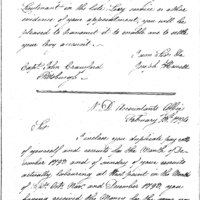 Lieutenant in the late Levy inclose or other
evidence of your appointment, you will be
pleased to transmit it to enable me to settle
your Levy account.
I am Sir &a
Capt. John Crawford Joseph Howell
Pittsburgh
W D Accountants Office
February 1794
Sir
I inclose you duplicate pay rolls
of yourself and recruits for the Month of De-
cember 1793 and of sundry of your recruits
actually belonging at that point in the Months
of Oct. Nov. and December 1793, you
having received the Money for the same you